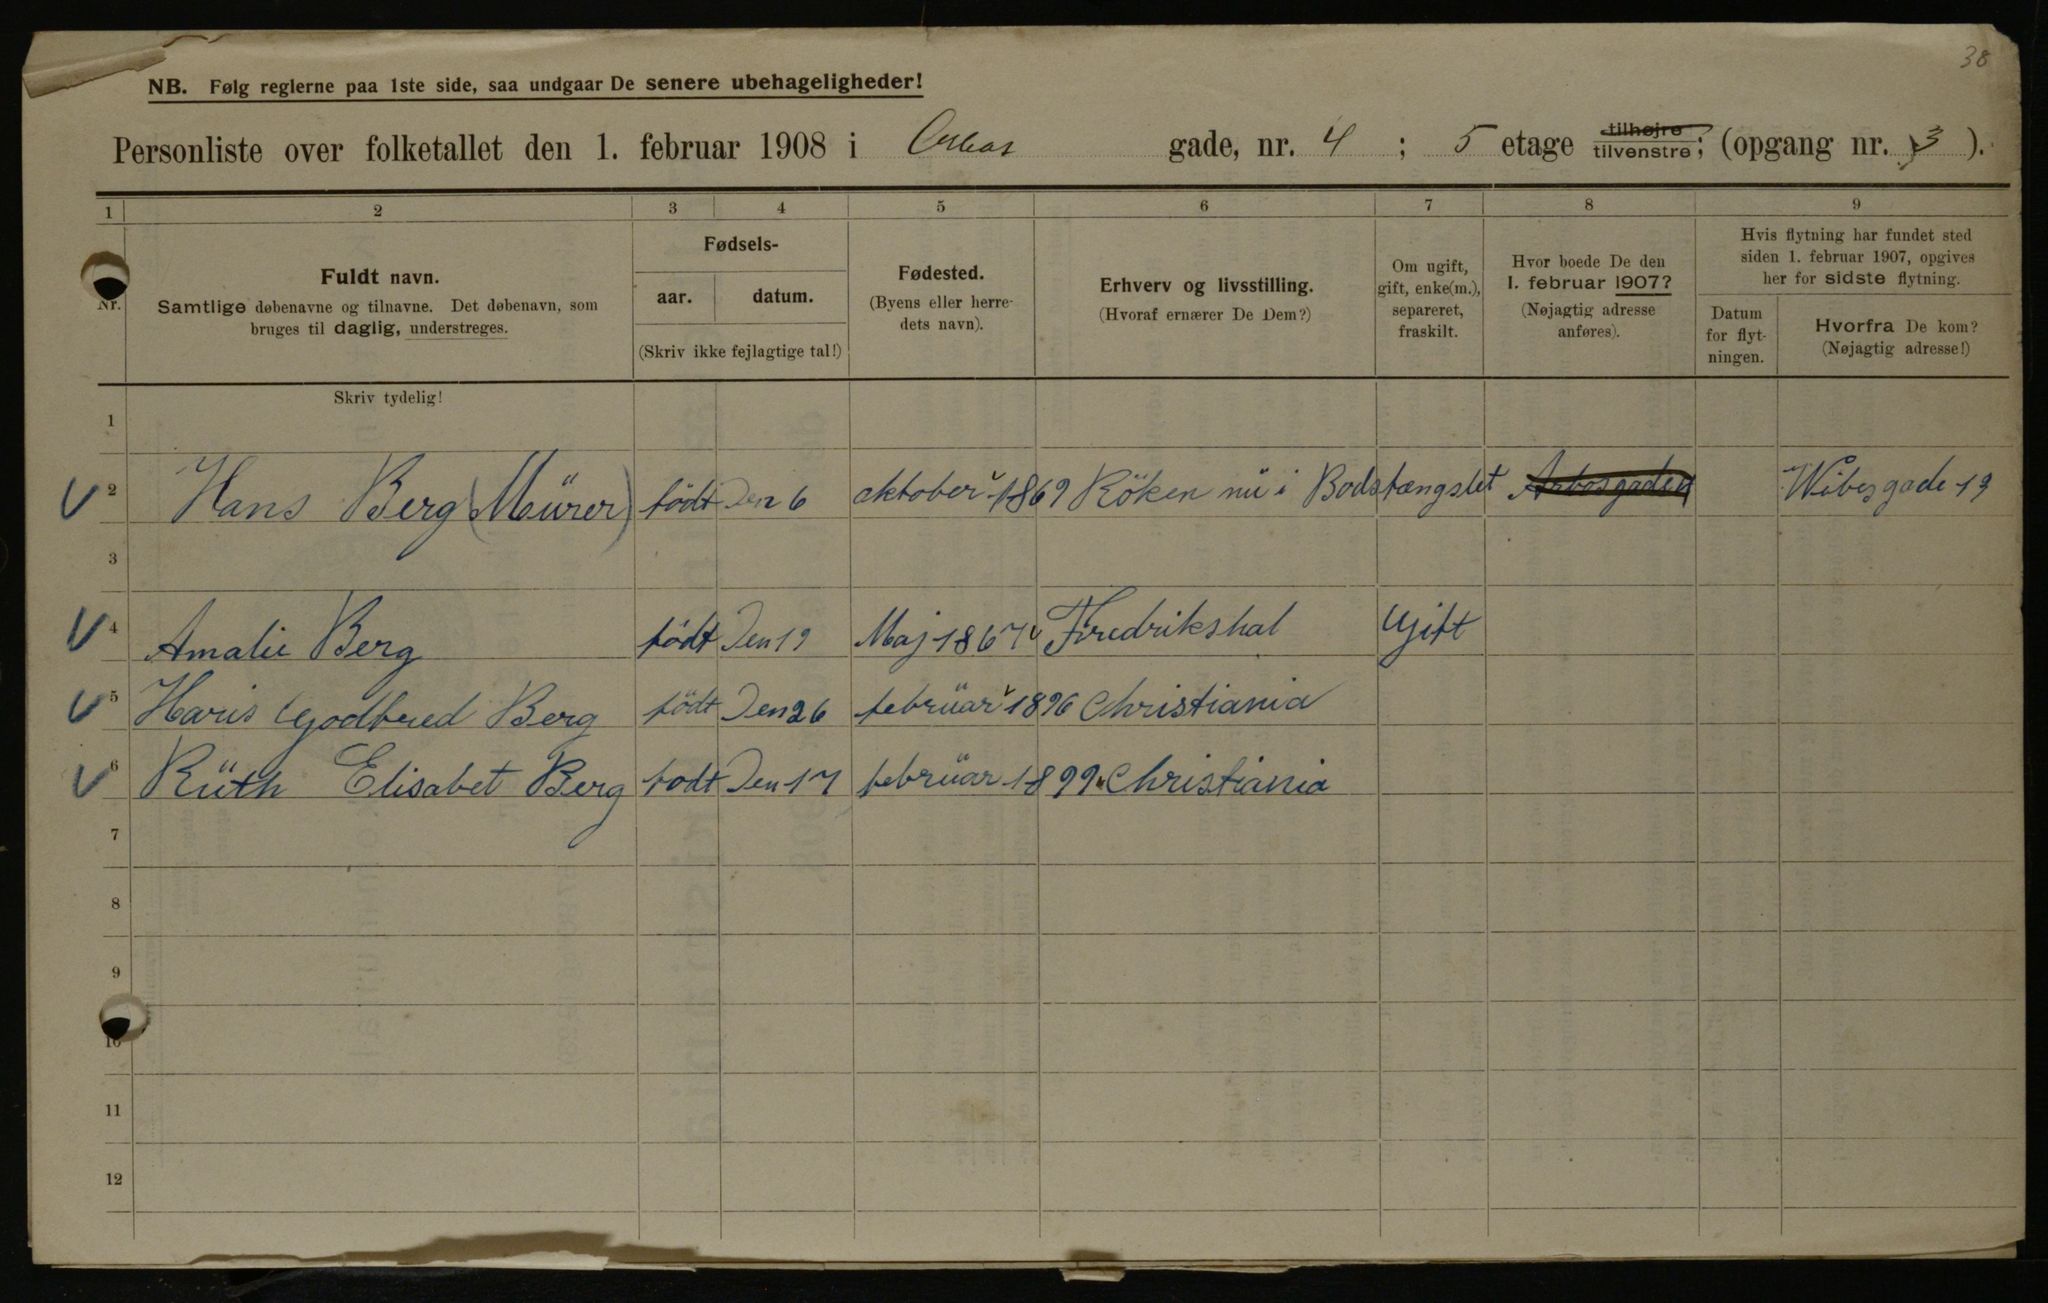 38
NB. Følg reglerne paa 1ste side, saa undgaar De senere ubehageligheder!
Personliste over folketallet den 1. februar 1908 i Arbos gade, nr. 4 ; 5 etage tilhøjre tilvenstre; (opgang nr. 3 ).
1 2 3 4 5 6 7 8 9
Nr.
Fuldt navn.
Samtlige døbenavne og tilnavne. Det døbenavn, som
bruges til daglig, understreges.
Fødsels-
aar. datum.
(Skriv ikke fejlagtige tal!)
Fødested.
(Byens eller herre-
dets navn).
Erhverv og livsstilling.
(Hvoraf ernærer De Dem?)
Om ugift,
gift, enke(m.),
separeret,
fraskilt.
Hvor boede De den
1. februar 1907?
(Nøjagtig adresse
anføres).
Hvis flytning har fundet sted
siden 1. februar 1907, opgives
her for sidste flytning.
Datum
for flyt-
ningen.
Hvorfra De kom?
(Nøjagtig adresse!)
Skriv tydelig!
1
2 Hans Berg (Mürer) födt Den 6 oktober 1869 Röken nü i Bodsfængslet Arbosgaden Wibesgade 19
3
4 Amalie Berg födt Den 19 Maj 1867 Fredrikshal Gift
5 Haris Godtfred Berg födt Den 26 februar 1896 Christiania
6 Rüth Elisabet Berg fodt Den 17 februar 1899 Christiania
7
8
9
10
11
12